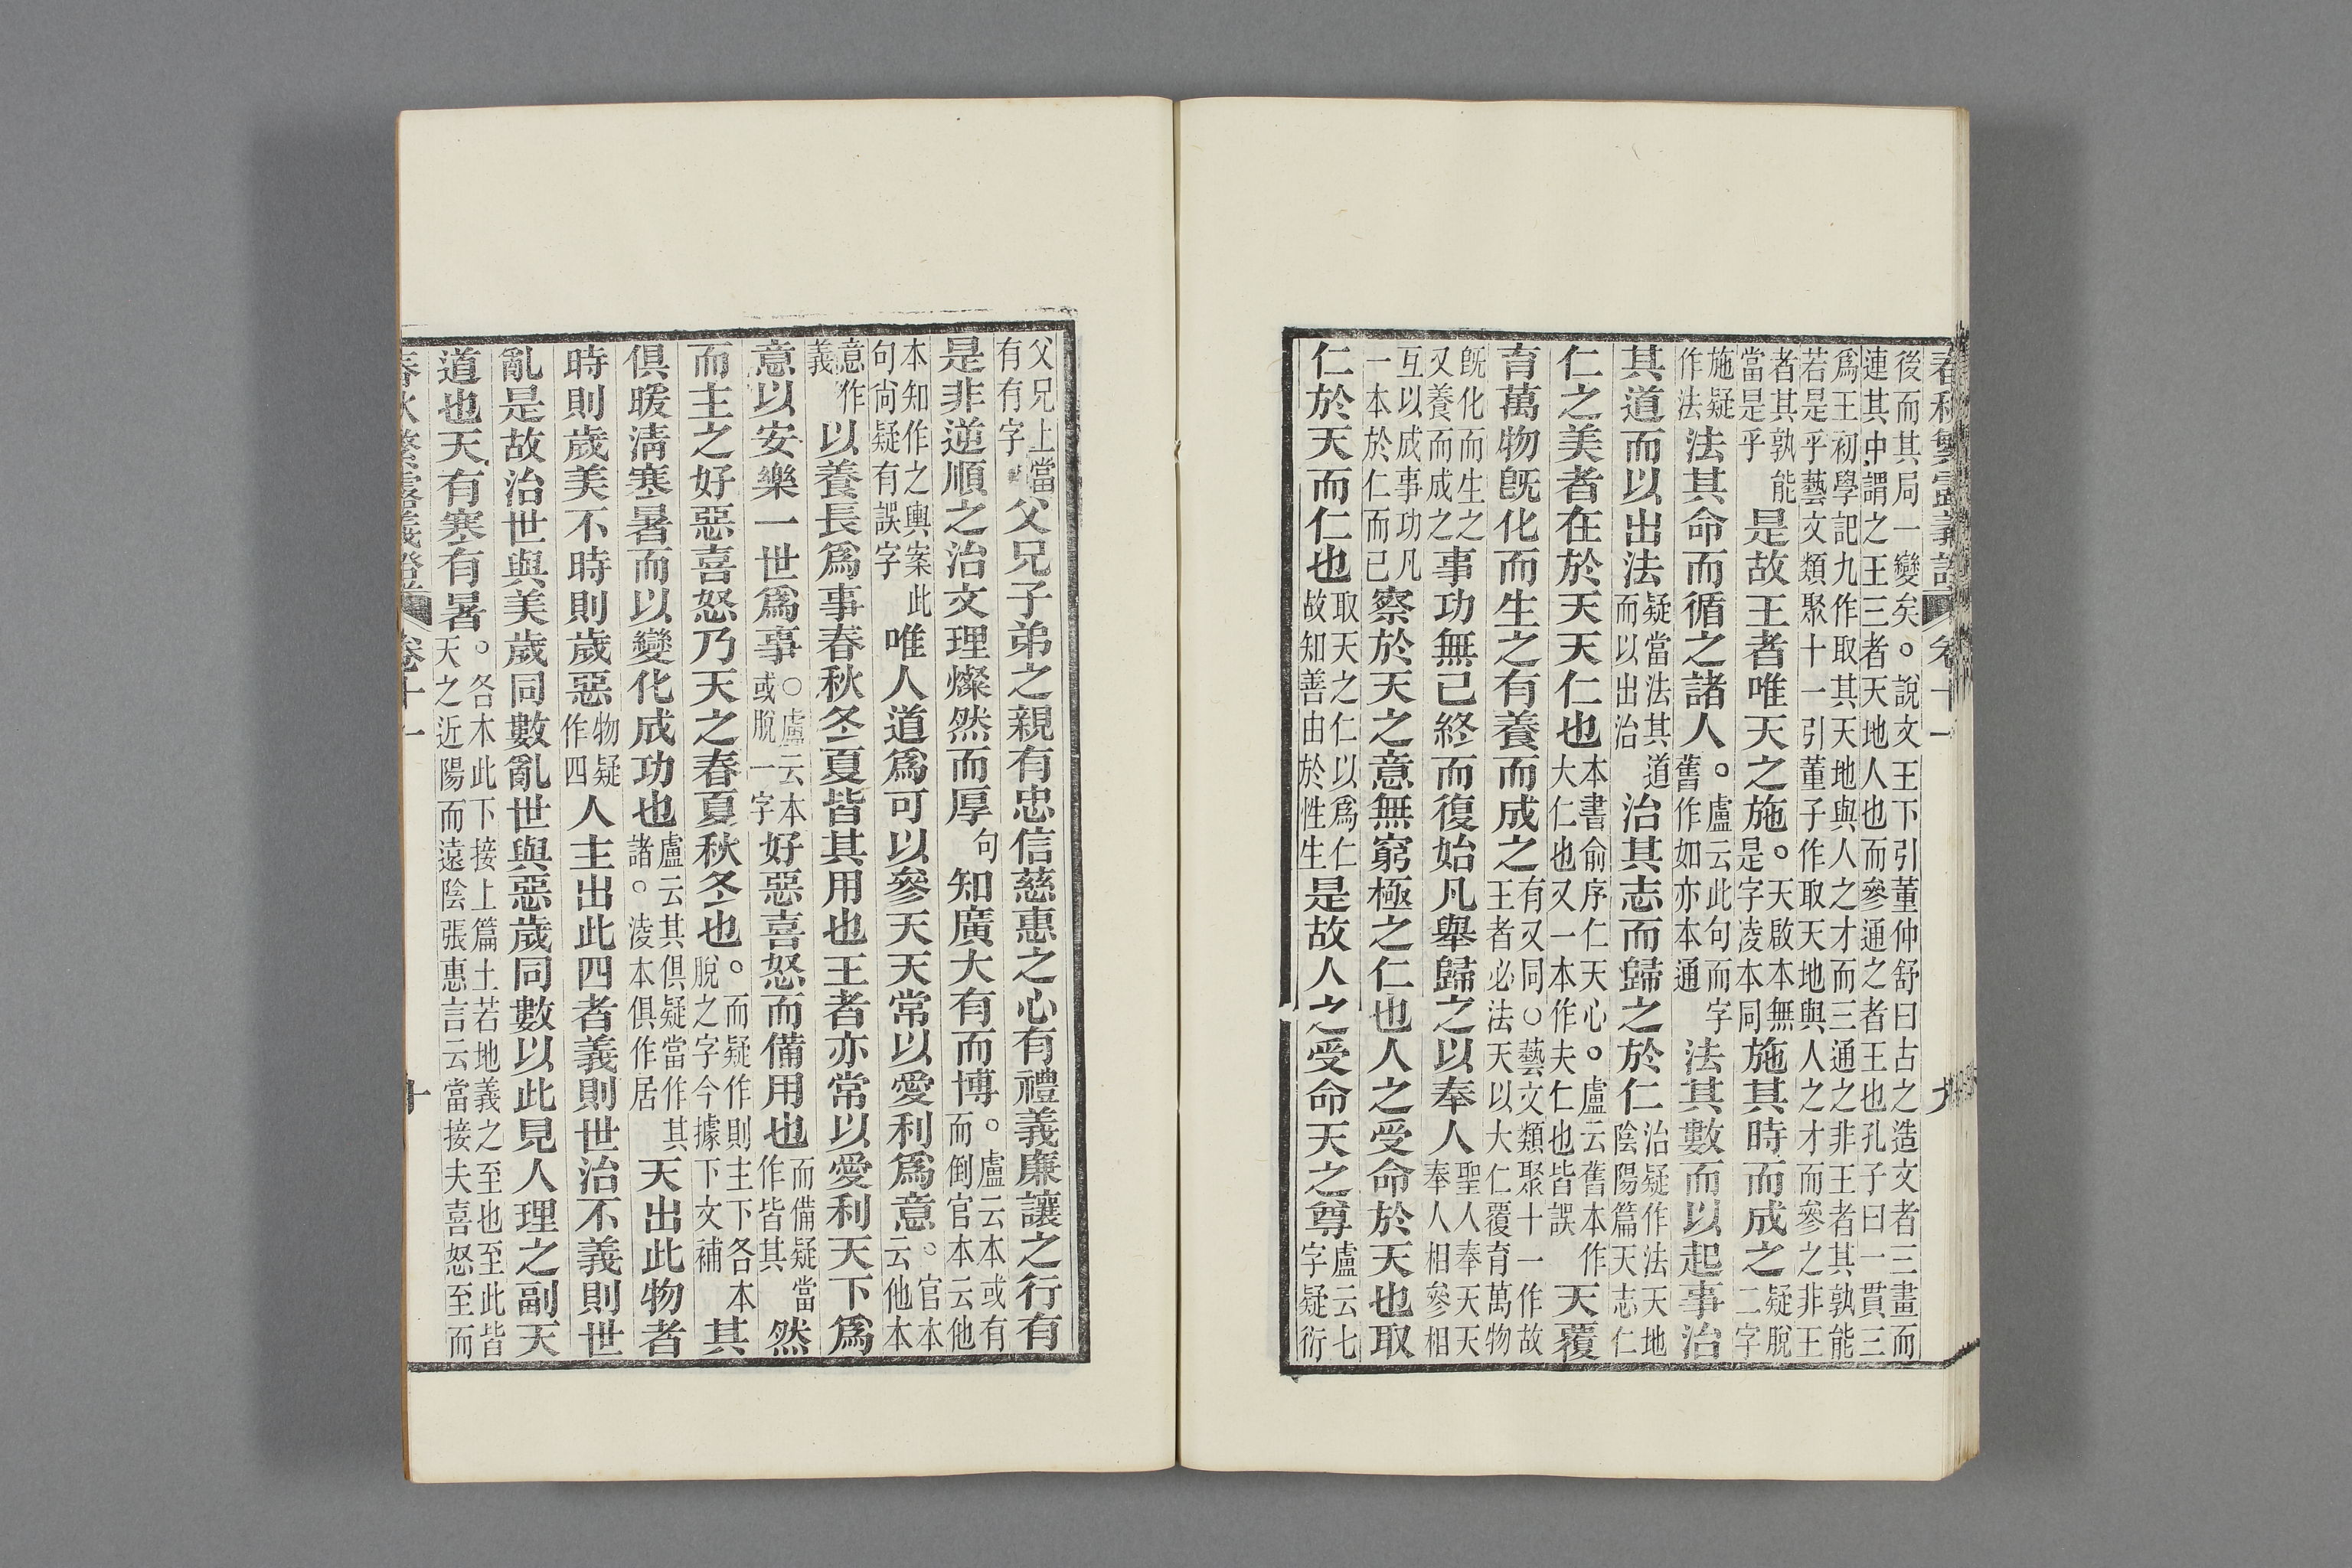 春秋繁露義證 卷十一 九
後而其局一變矣。說文王下引董仲舒曰古之造文者三畫而
連其中謂之王三者天地人也而參通之者王也孔子曰一貫三
爲王初學記九作取其天地與人之才而三通之非王者其孰能
若是乎藝文類聚十一引董子作取天地與人之才而參之非王
者其孰能當是乎是故王者唯天之施。天啟本無是字凌本同施其時而成之疑脫二字
施疑作法法其命而循之諸人。盧云此句而字舊作如亦本通法其數而以起事治
其道而以出法疑當法其道而以出治治其志而歸之於仁治疑作法天地陰陽篇天志仁
仁之美者在於天天仁也本書俞序仁天心。盧云舊本作大仁也又一本作夫仁也皆誤天覆
育萬物旣化而生之有養而成之有又同○藝文類聚十一作故王者必法天以大仁覆育萬物
旣化而生之又養而成之事功無已終而復始凡舉歸之以奉人聖人奉天天奉人相參相
互以成事功凡一本於仁而已察於天之意無窮極之仁也人之受命於天也取
仁於天而仁也取天之仁以爲仁故知善由於性生是故人之受命天之尊盧云七字疑衍
父兄上當有有字父兄子弟之親有忠信慈惠之心有禮義廉讓之行有
是非逆順之治文理燦然而厚句知廣大有而博。盧云本或有而倒官本云他
本知作之輿案此句尙疑有誤字唯人道爲可以參天天常以愛利爲意。官本云他本
意作義以養長爲事春秋冬夏皆其用也王者亦常以愛利天下爲
意以安樂一世爲事○盧云本或脫一字好惡喜怒而備用也而備疑當作皆其然
而主之好惡喜怒乃天之春夏秋冬也。而疑作則主下各本脫之字今據下文補其
俱暖淸寒暑而以變化成功也盧云其俱疑當作其諸。淩本俱作居天出此物者
時則歲美不時則歲惡物疑作四人主出此四者義則世治不義則世
亂是故治世與美歲同數亂世與惡歲同數以此見人理之副天
道也天有寒有暑。各本此下接上篇土若地義之至也至此皆天之近陽而遠陰張惠言云當接夫喜怒至而
春秋繁露義證 卷十一 十